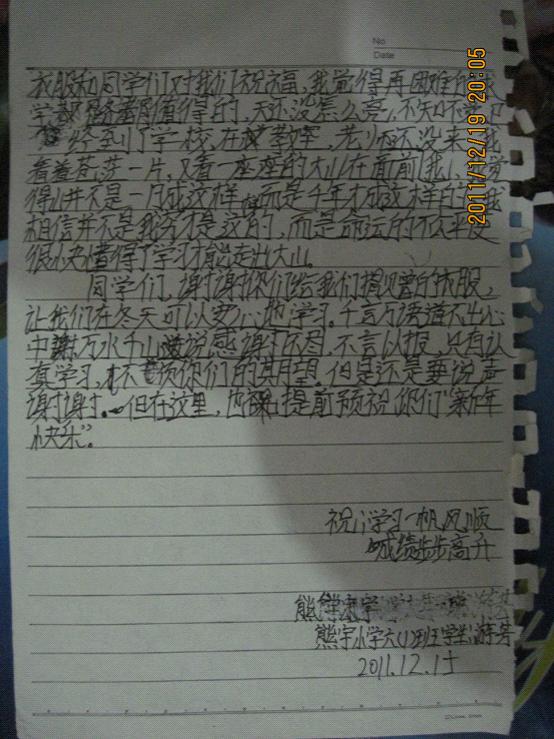 No
Date
衣服和同学们对我们祝福,我觉得再困难的
学都 是值得的,天还没怎么亮,不知不觉已
经到了学校,在教室,老师还没来,我
看着苍茫一片,又看一座座的大山在面前,我觉
得山并不是一月成这样,而是千年才成这样的,我
相信并不是我穷才是这的,而是命运的不公平,
很快懂得了学习才能走出大山。
同学们,谢谢你们给我们捐见曾的衣服,
让我们在冬天可以安心地学习。千言万语道不出心
中谢万水千山说感谢不尽,不言以报,只有认
真学习,才不负你们的期望。但是还是要说声
谢谢。但在这里,也提前预祝你们“新年
快乐”。
祝:学习一帆风顺
成绩步步高升
熊宇小学六(1)班学生:游
2011.12.1
2011/12/19 20:05